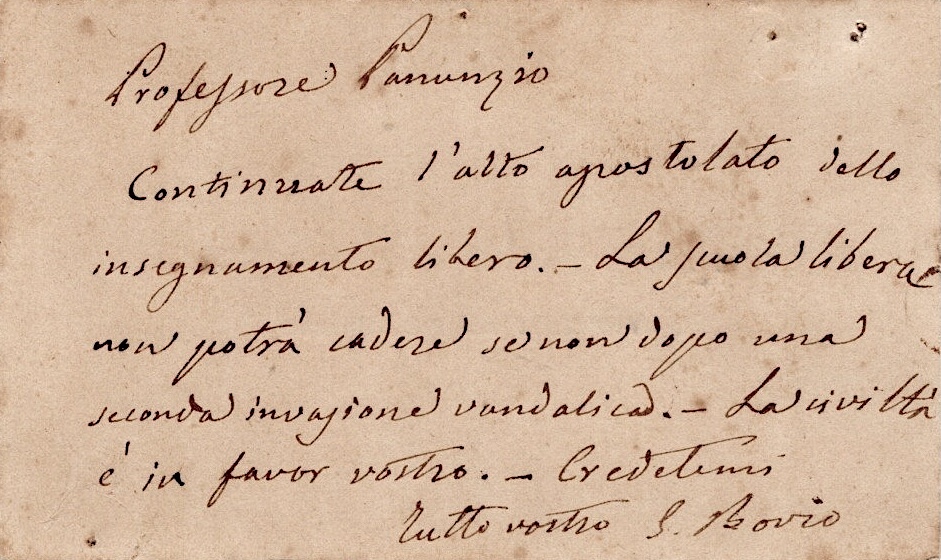 Professore Panunzio
Continuate l'alto apostolato dello
insegnamento libero. – La scuola libera
non potrà cadere se non dopo una
seconda invasione vandalica. – La civiltà
é in favor vostro. – Credetemi
Tutto vostro G. Bovio